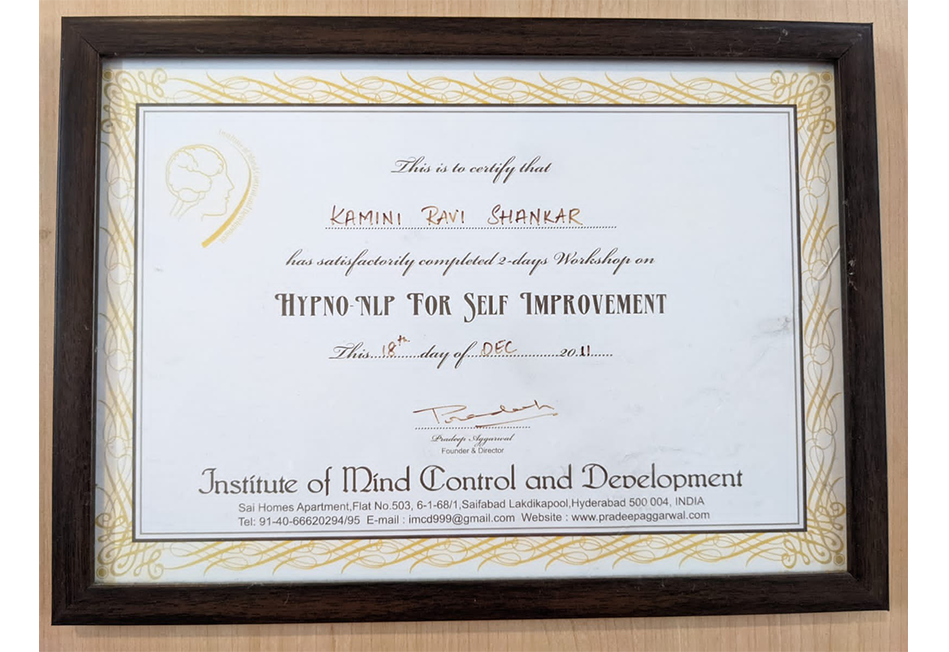 This is to certify that
KAMINI RAVI SHANKAR
has satisfactorily completed 2-days Workshop on
HYPNO-NLP FOR SELF IMPROVEMENT
This...18th...day of...DEC...........2011......
Pradeep
Pradeep Aggarwal
Founder & Director
Institute of Mind Control and Development
Sai Homes Apartment,Flat No.503, 6-1-68/1,Saifabad Lakdikapool,Hyderabad 500 004, INDIA
Tel: 91-40-66620294/95 E-mail : imcd999@gmail.com Website : www.pradeepaggarwal.com